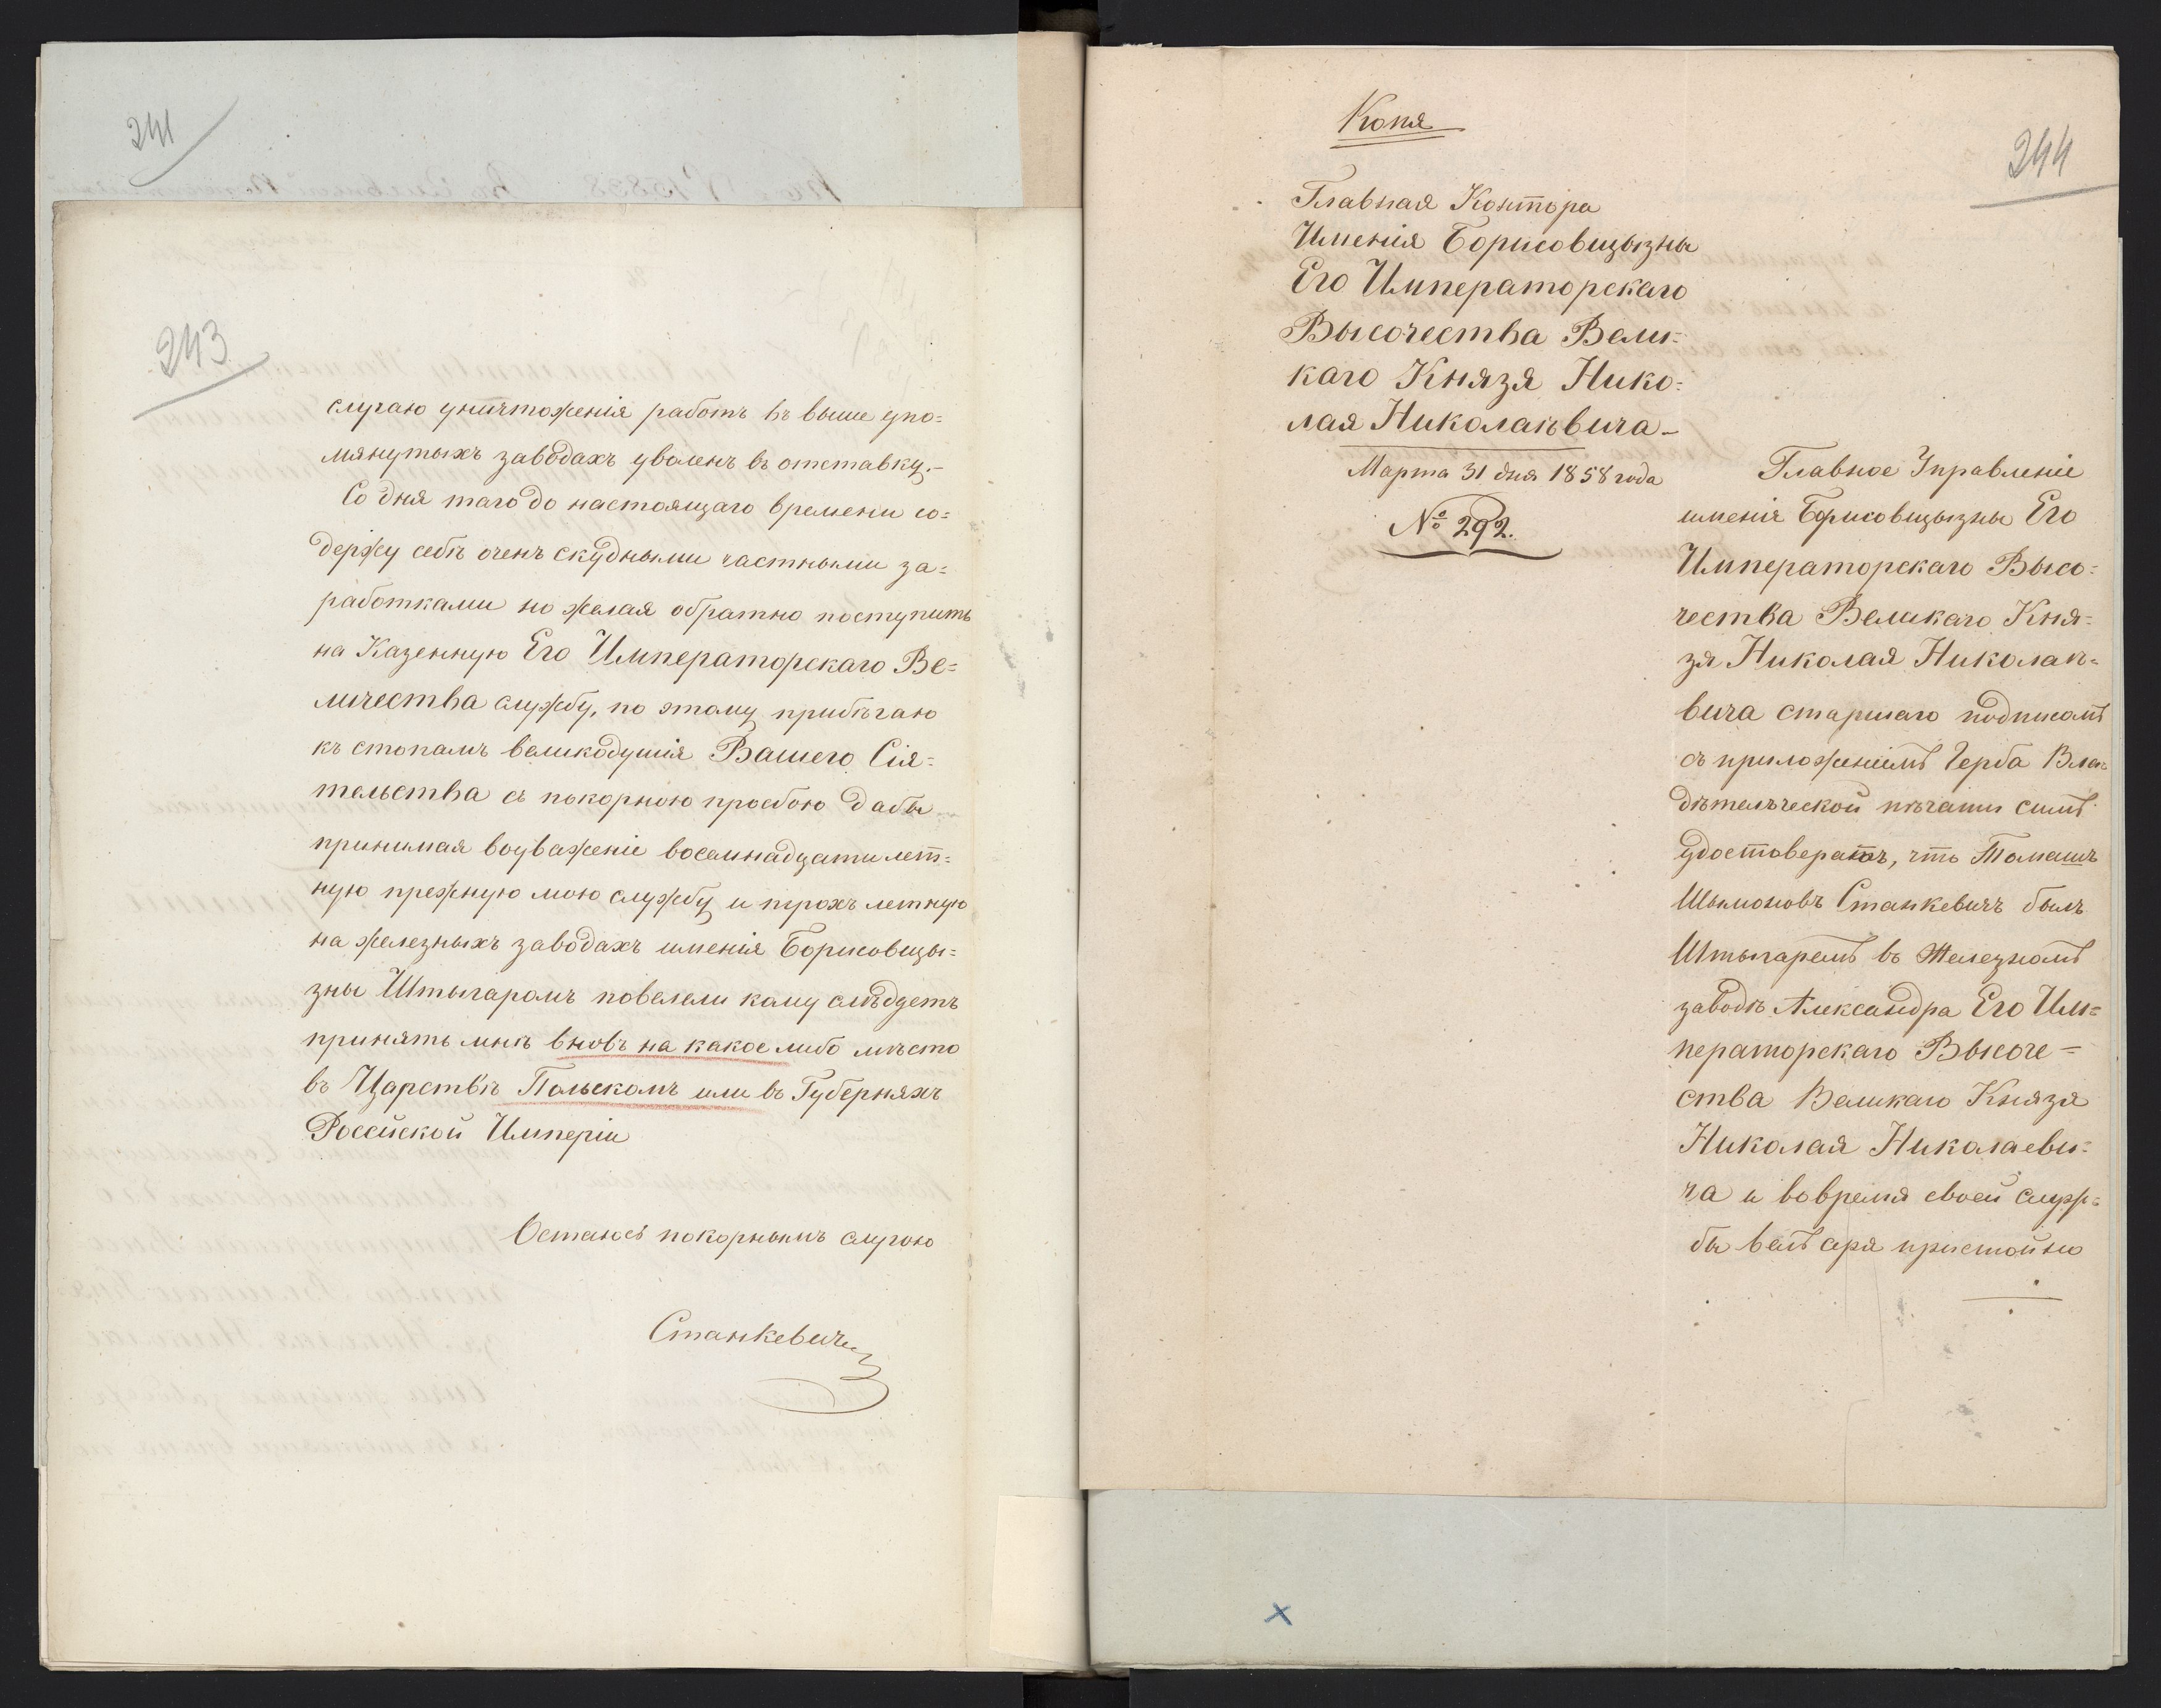 241
243
случаю уничтоженія работъ въ выше упо=
мянутыхъ заводахъ уволенъ въ отставку.-
Со дня таго до настоящаго времени со=
держу себѣ оченъ скудными частными за=
работками но желая обратно поступить
на Казенную Его Императорскаго Ве=
личества службу, по этому прибѣгаю
къ стопамъ великодушія Вашего Сія=
тельства съ покорною прозбою дабы
принимая воуваженіе восемнадцати лет=
ную прежную мою службу и трохъ летную
на железныхъ заводахъ именія Борисовщы=
зны Штыгаромъ повелели кому слѣдуетъ
принять мнѣ вновъ на какое либо мѣсто
въ Царствѣ Польскомъ или въ Губерняхъ
Россійской Имперіи
Остаюсь покорнымъ слугою
Станкевичъ
Копія
244
Главная Контора
Именія Борисовщызны
Его Императорскаго
Высочества Вели=
каго Князя Нико=
лая Николаѣвича-
Марта 31 дня 1858 года
№ 292.
Главное Управленіе
именія Борисовщызны Его
Императорскаго Высо=
чества Великаго Кня=
зя Николая Николаѣ=
вича старшаго подписомъ
съ приложеніемъ Герба Вла=
дѣтельческой пѣчати симъ
удостоверяетъ, что Томашъ
Шымоновъ Станкевичъ былъ
Штыгаремъ въ Железномъ
заводѣ Александра Его Им=
ператорскаго Высоче=
ства Великаго Князя
Николая Николаеви=
ча и вовремя своей служ=
бы велъ себя пристойно